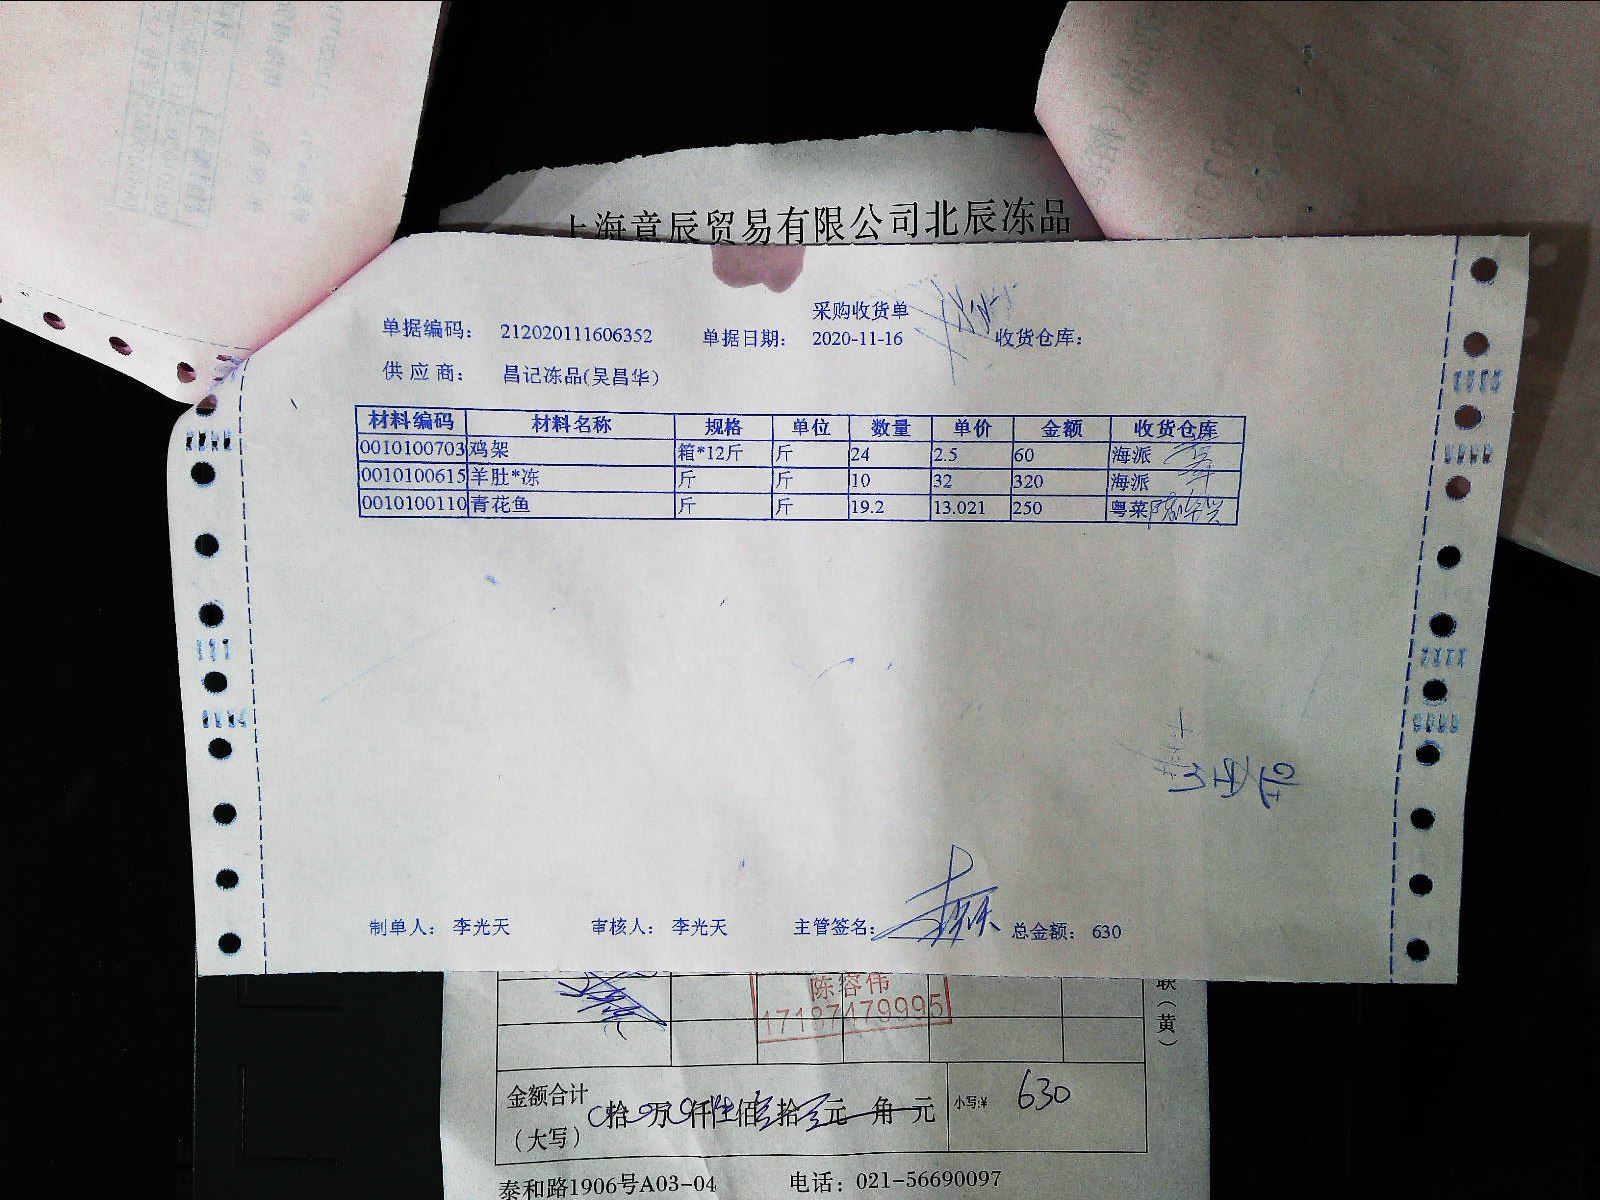 上海意辰贸易有限公司北辰冻品
采购收货单
单据编码： 212020111606352 单据日期： 2020-11-16 收货仓库：
供应商： 昌记冻品(吴昌华)
材料编码 材料名称 规格 单位 数量 单价 金额 收货仓库
0010100703 鸡架 箱*12斤 斤 24 2.5 60 海派
0010100615 羊肚*冻 斤 斤 10 32 320 海派
0010100110 青花鱼 斤 斤 19.2 13.021 250 粤菜
制单人： 李光天 审核人： 李光天 主管签名： 总金额： 630
陈容伟
17187479995
联（黄）
金额合计（大写） 拾 万 仟陆佰 拾 元 角 元 小写:¥ 630
泰和路1906号A03-04 电话：021-56690097